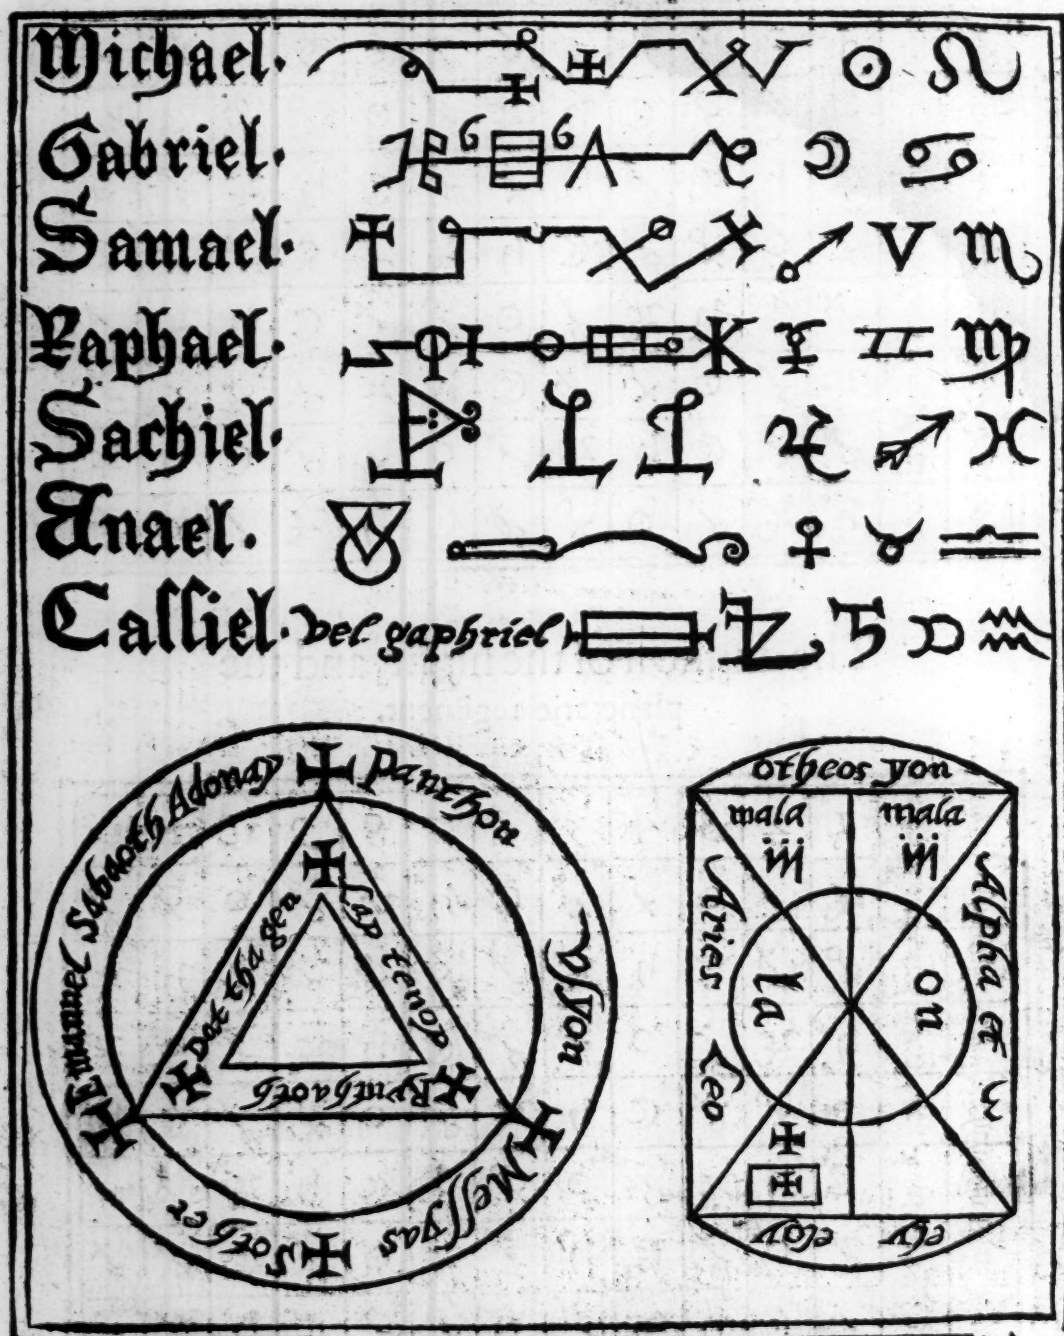 Michael.
Gabriel.
Samael.
Raphael.
Sachiel.
Anael.
Caſſiel. vel gaphriel
Emanuel Sabaoth Adonay
Panthon
Vſyon
Meſſyas
Sother
Dat tha gen
ſap tenop
Rynthaoth
otheos yon
mala
mala
Aries
Leo
la
on
Alpha et ω
eloy
ely